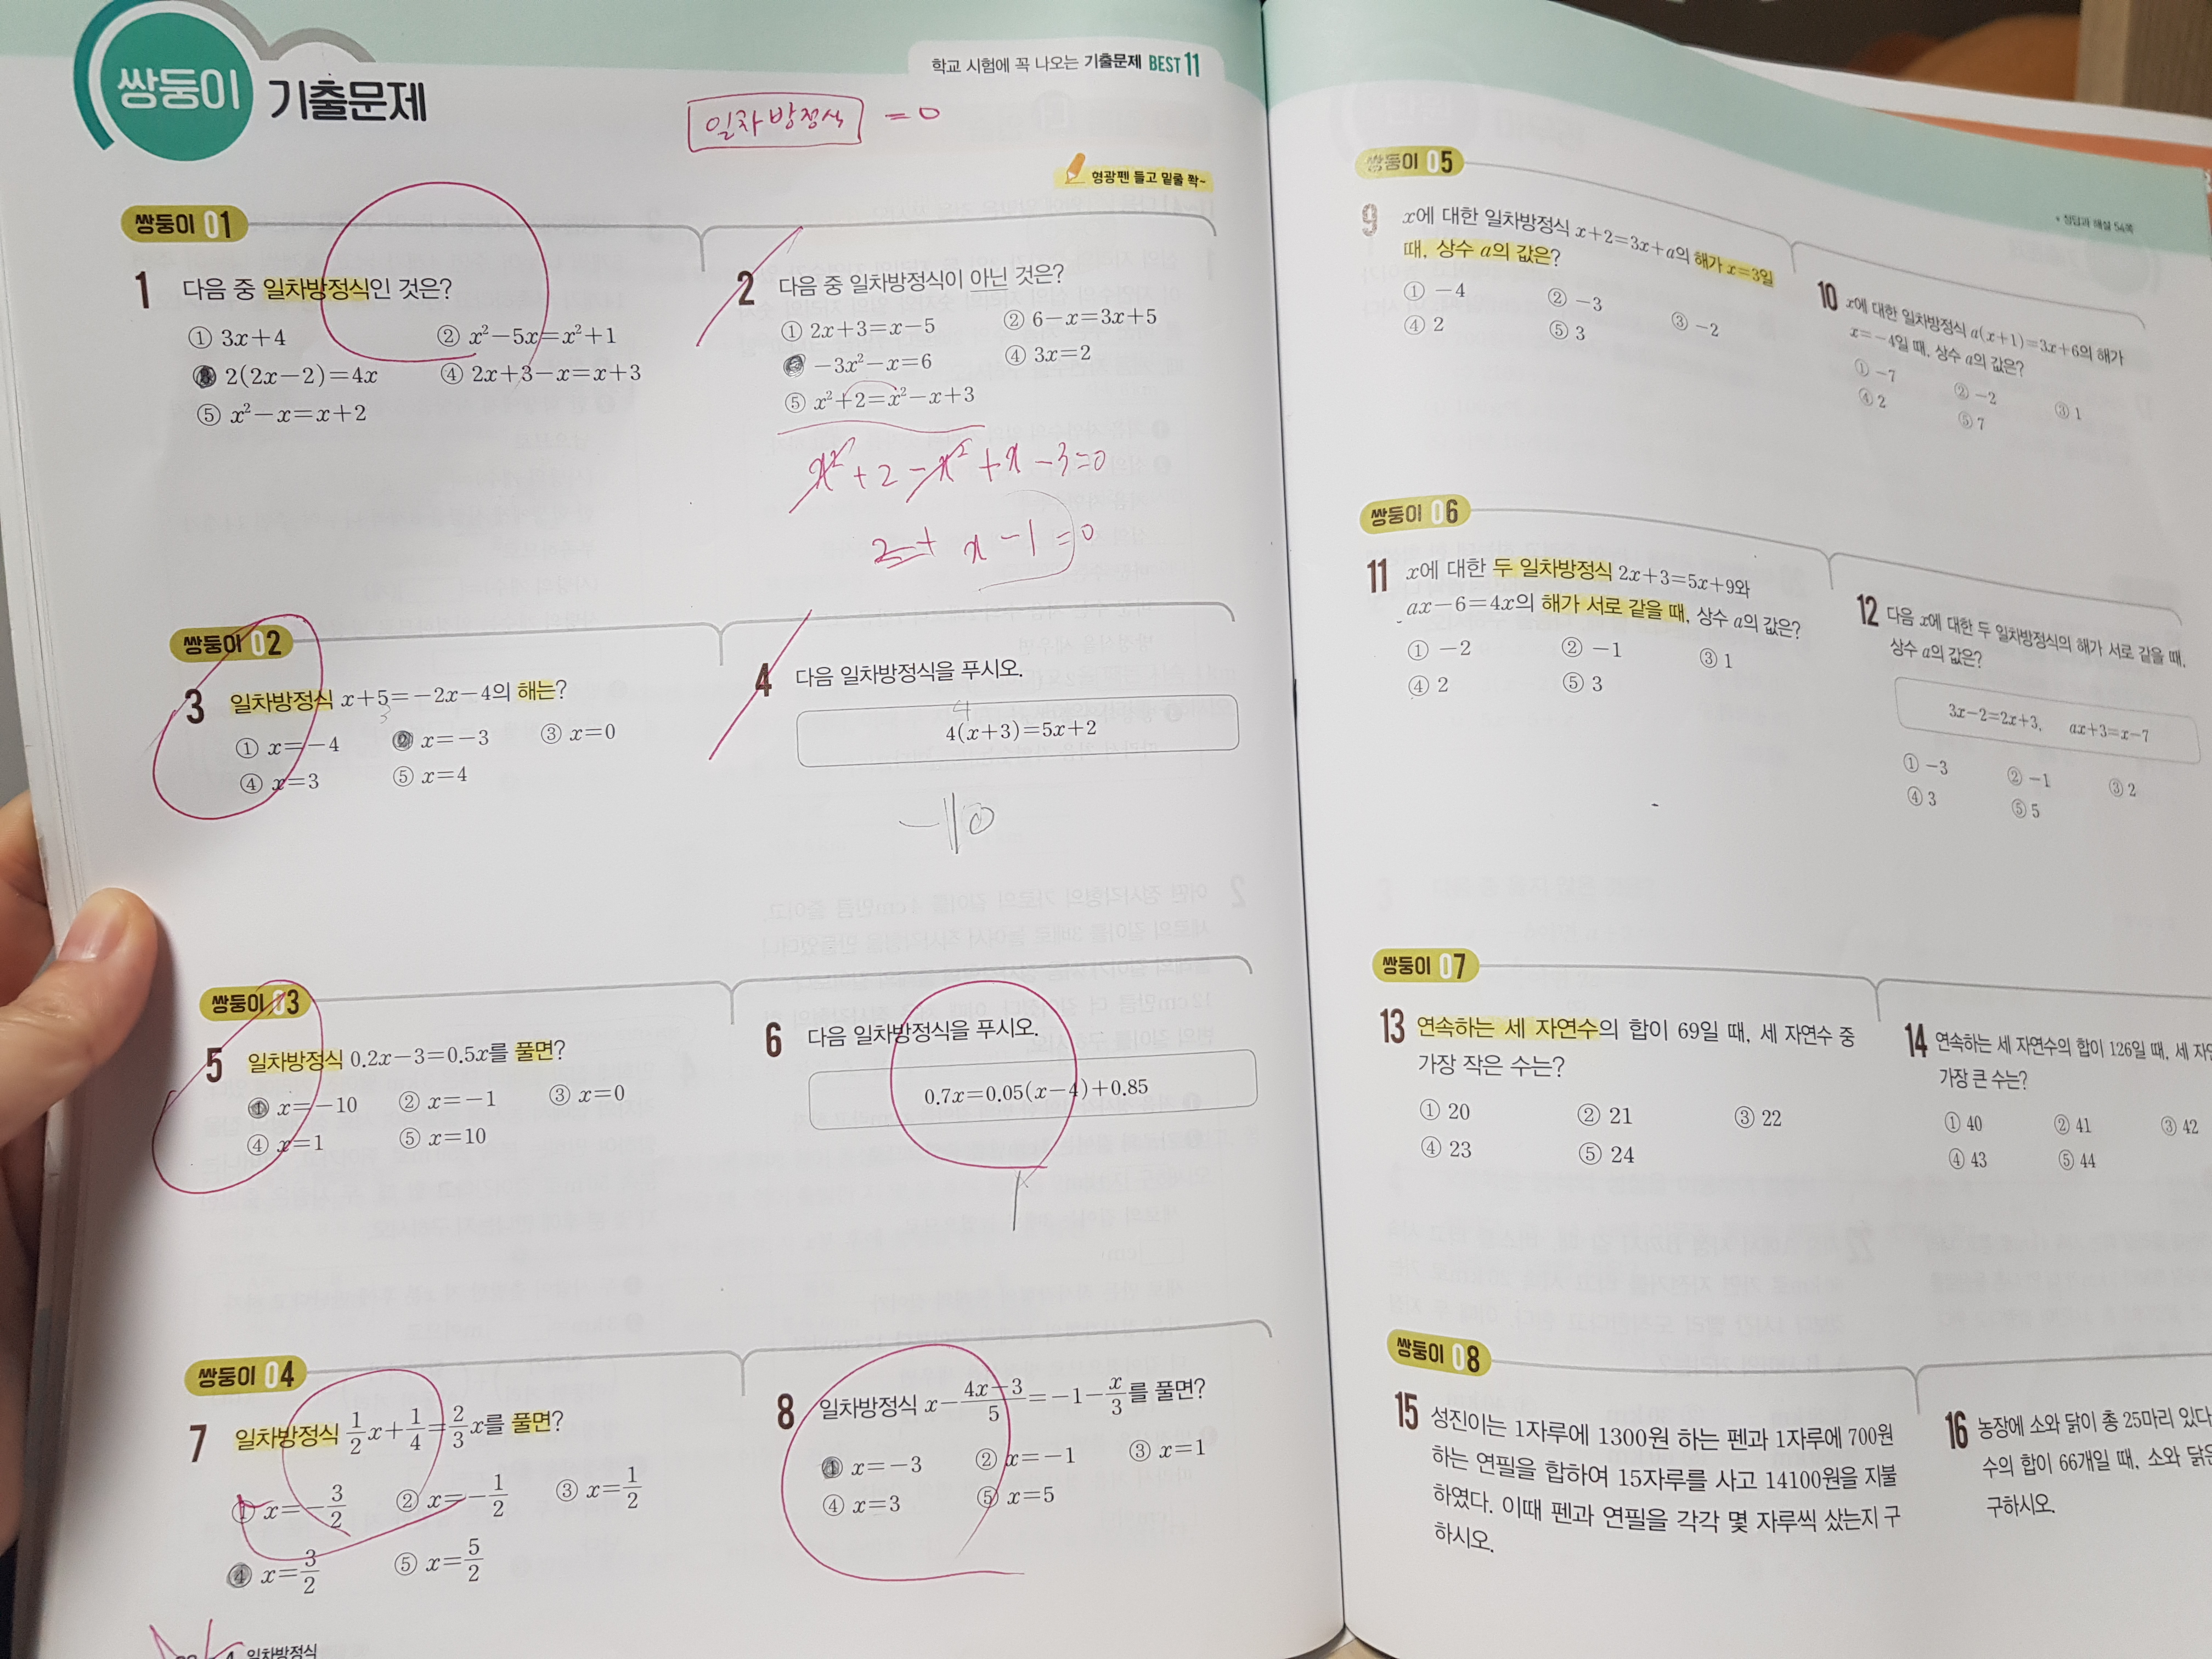 쌍둥이 기출문제
학교 시험에 꼭 나오는 기출문제 BEST 11
일차방정식 = 0
형광펜 들고 밑줄 쫙~
쌍둥이 01
1 다음 중 일차방정식인 것은?
① 3x+4 ② x²−5x=x²+1
③ 2(2x−2)=4x ④ 2x+3−x=x+3
⑤ x²−x=x+2
2 다음 중 일차방정식이 아닌 것은?
① 2x+3=x−5 ② 6−x=3x+5
③ −3x²−x=6 ④ 3x=2
⑤ x²+2=x²−x+3
x²+2−x²+x−3=0
x−1=0
쌍둥이 02
3 일차방정식 x+5=−2x−4의 해는?
3
① x=−4 ② x=−3 ③ x=0
④ x=3 ⑤ x=4
4 다음 일차방정식을 푸시오.
4
4(x+3)=5x+2
쌍둥이 03
5 일차방정식 0.2x−3=0.5x를 풀면?
① x=−10 ② x=−1 ③ x=0
④ x=1 ⑤ x=10
6 다음 일차방정식을 푸시오.
0.7x=0.05(x−4)+0.85
1
쌍둥이 04
7 일차방정식 1/2x+1/4=2/3x를 풀면?
① x=−3/2 ② x=−1/2 ③ x=1/2
④ x=3/2 ⑤ x=5/2
8 일차방정식 x−(4x−3)/5=−1−x/3를 풀면?
① x=−3 ② x=−1 ③ x=1
④ x=3 ⑤ x=5
4 일차방정식
정답과 해설 54쪽
쌍둥이 05
9 x에 대한 일차방정식 x+2=3x+a의 해가 x=3일
때, 상수 a의 값은?
① −4 ② −3 ③ −2
④ 2 ⑤ 3
10 x에 대한 일차방정식 a(x+1)=3x+6의 해가
x=−4일 때, 상수 a의 값은?
① −7 ② −2 ③ 1
④ 2 ⑤ 7
쌍둥이 06
11 x에 대한 두 일차방정식 2x+3=5x+9와
ax−6=4x의 해가 서로 같을 때, 상수 a의 값은?
① −2 ② −1 ③ 1
④ 2 ⑤ 3
12 다음 x에 대한 두 일차방정식의 해가 서로 같을 때,
상수 a의 값은?
3x−2=2x+3, ax+3=x−7
① −3 ② −1 ③ 2
④ 3 ⑤ 5
쌍둥이 07
13 연속하는 세 자연수의 합이 69일 때, 세 자연수 중
가장 작은 수는?
① 20 ② 21 ③ 22
④ 23 ⑤ 24
14 연속하는 세 자연수의 합이 126일 때, 세 자연
가장 큰 수는?
① 40 ② 41 ③ 42
④ 43 ⑤ 44
쌍둥이 08
15 성진이는 1자루에 1300원 하는 펜과 1자루에 700원
하는 연필을 합하여 15자루를 사고 14100원을 지불
하였다. 이때 펜과 연필을 각각 몇 자루씩 샀는지 구
하시오.
16 농장에 소와 닭이 총 25마리 있다
수의 합이 66개일 때, 소와 닭은
구하시오.